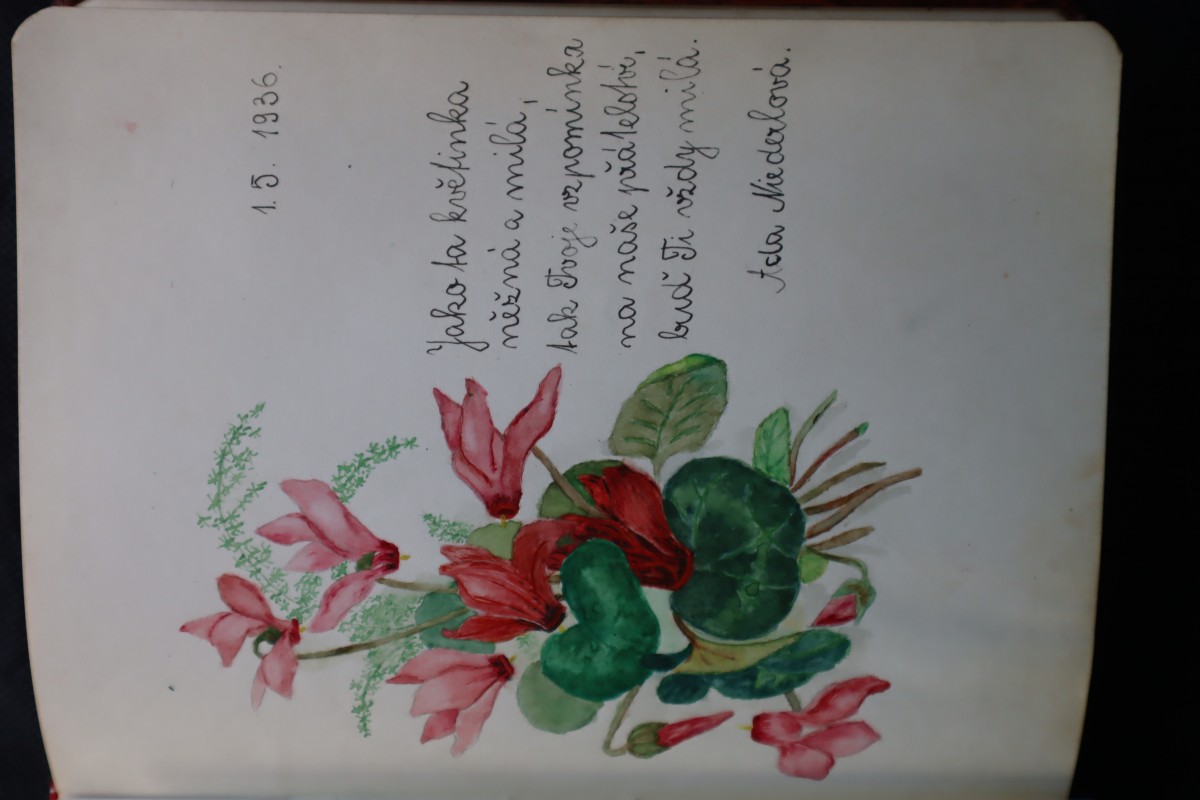 1.5. 1936.
Jako ta květinka
něžná a milá,
tak Tvoje vzpomínka
na naše přátelství,
buď Ti vždy milá.
Ada Niederlová.